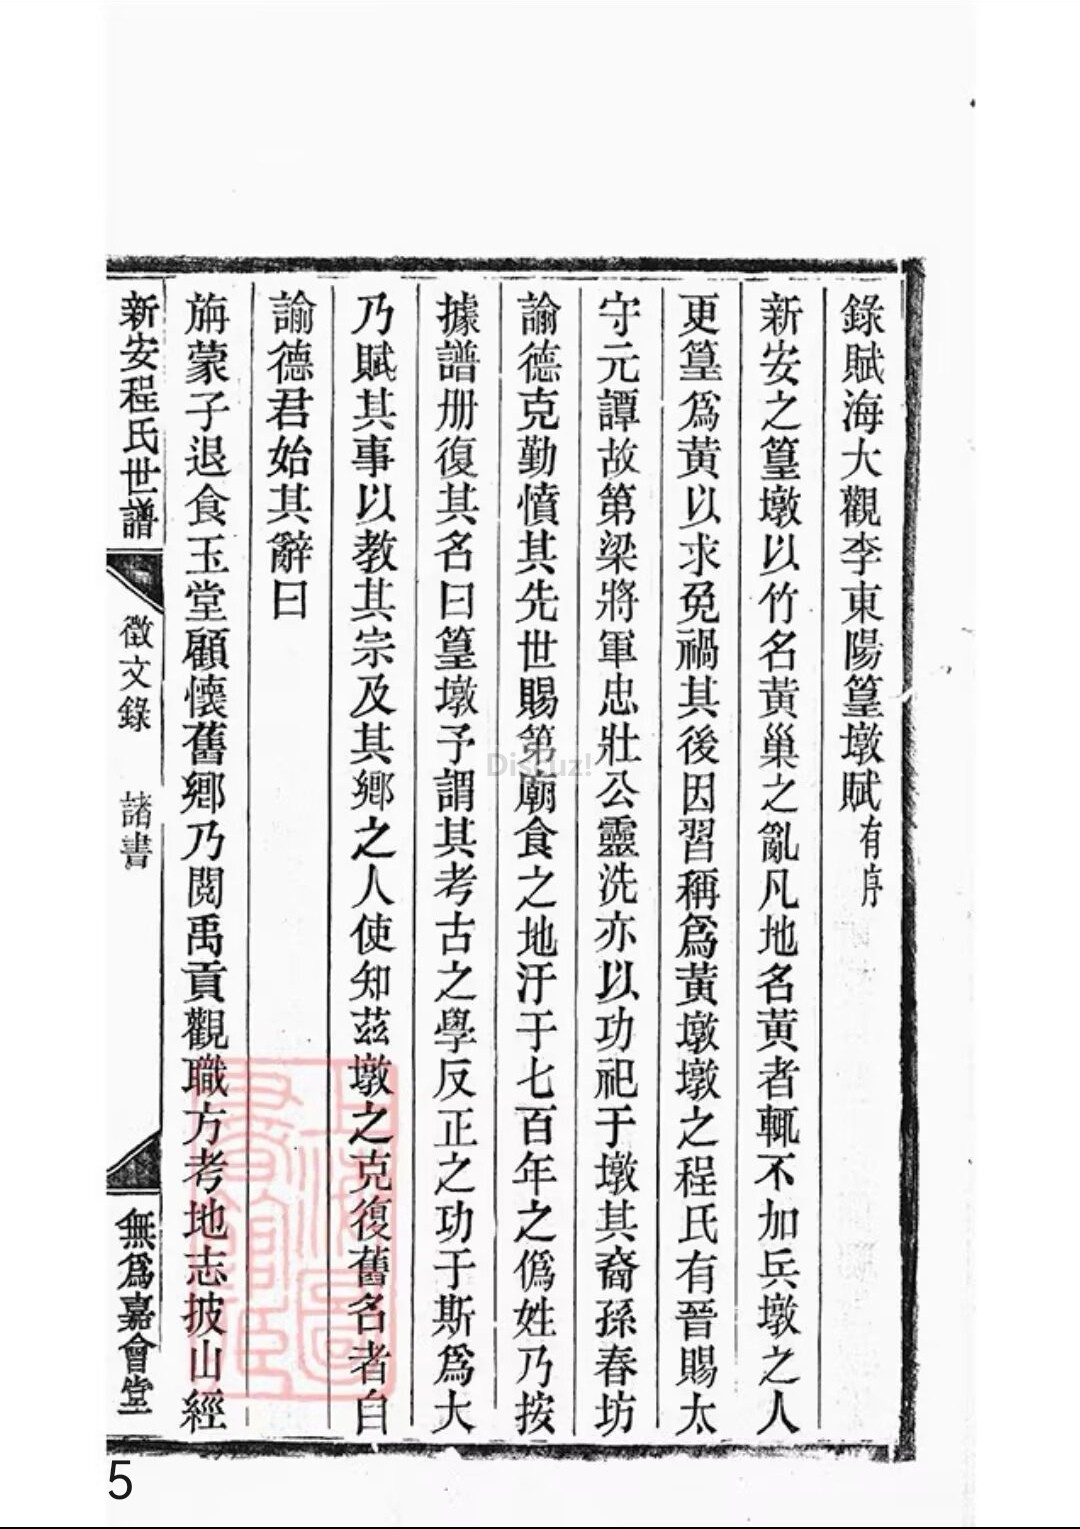 錄賦海大觀李東陽篁墩賦有序
新安之篁墩以竹名黃巢之亂凡地名黃者輒不加兵墩之人
更篁爲黃以求免禍其後因習稱爲黃墩墩之程氏有晉賜太
守元譚故第梁將軍忠壯公靈洗亦以功祀于墩其裔孫春坊
諭德克勤憤其先世賜第廟食之地汙于七百年之僞姓乃按
據譜册復其名曰篁墩予謂其考古之學反正之功于斯爲大
乃賦其事以教其宗及其鄉之人使知茲墩之克復舊名者自
諭德君始其辭曰
旃蒙子退食玉堂顧懷舊鄉乃閱禹貢觀職方考地志披山經
新安程氏世譜
徵文錄
諸書
無爲嘉會堂
上海圖書館藏
Discuz!
5